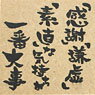 「感謝」「謙虚」
「素直」な気持が
一番大事